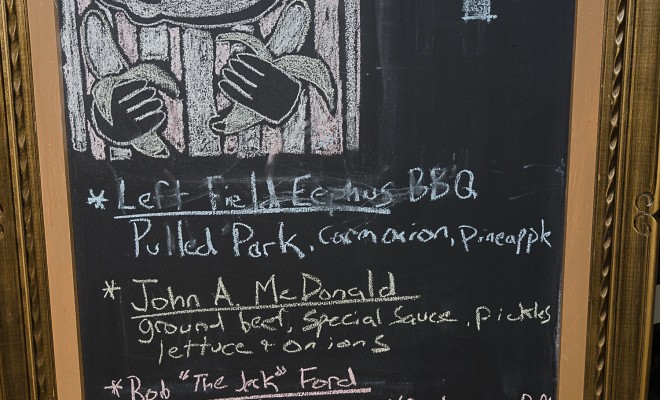 * Left Field Eephus BBQ
Pulled Pork, Corn onion, Pineapple
* John A. McDonald
ground beef, Special Sauce, pickles
lettuce + onions
* Bob "The Jerk" Ford